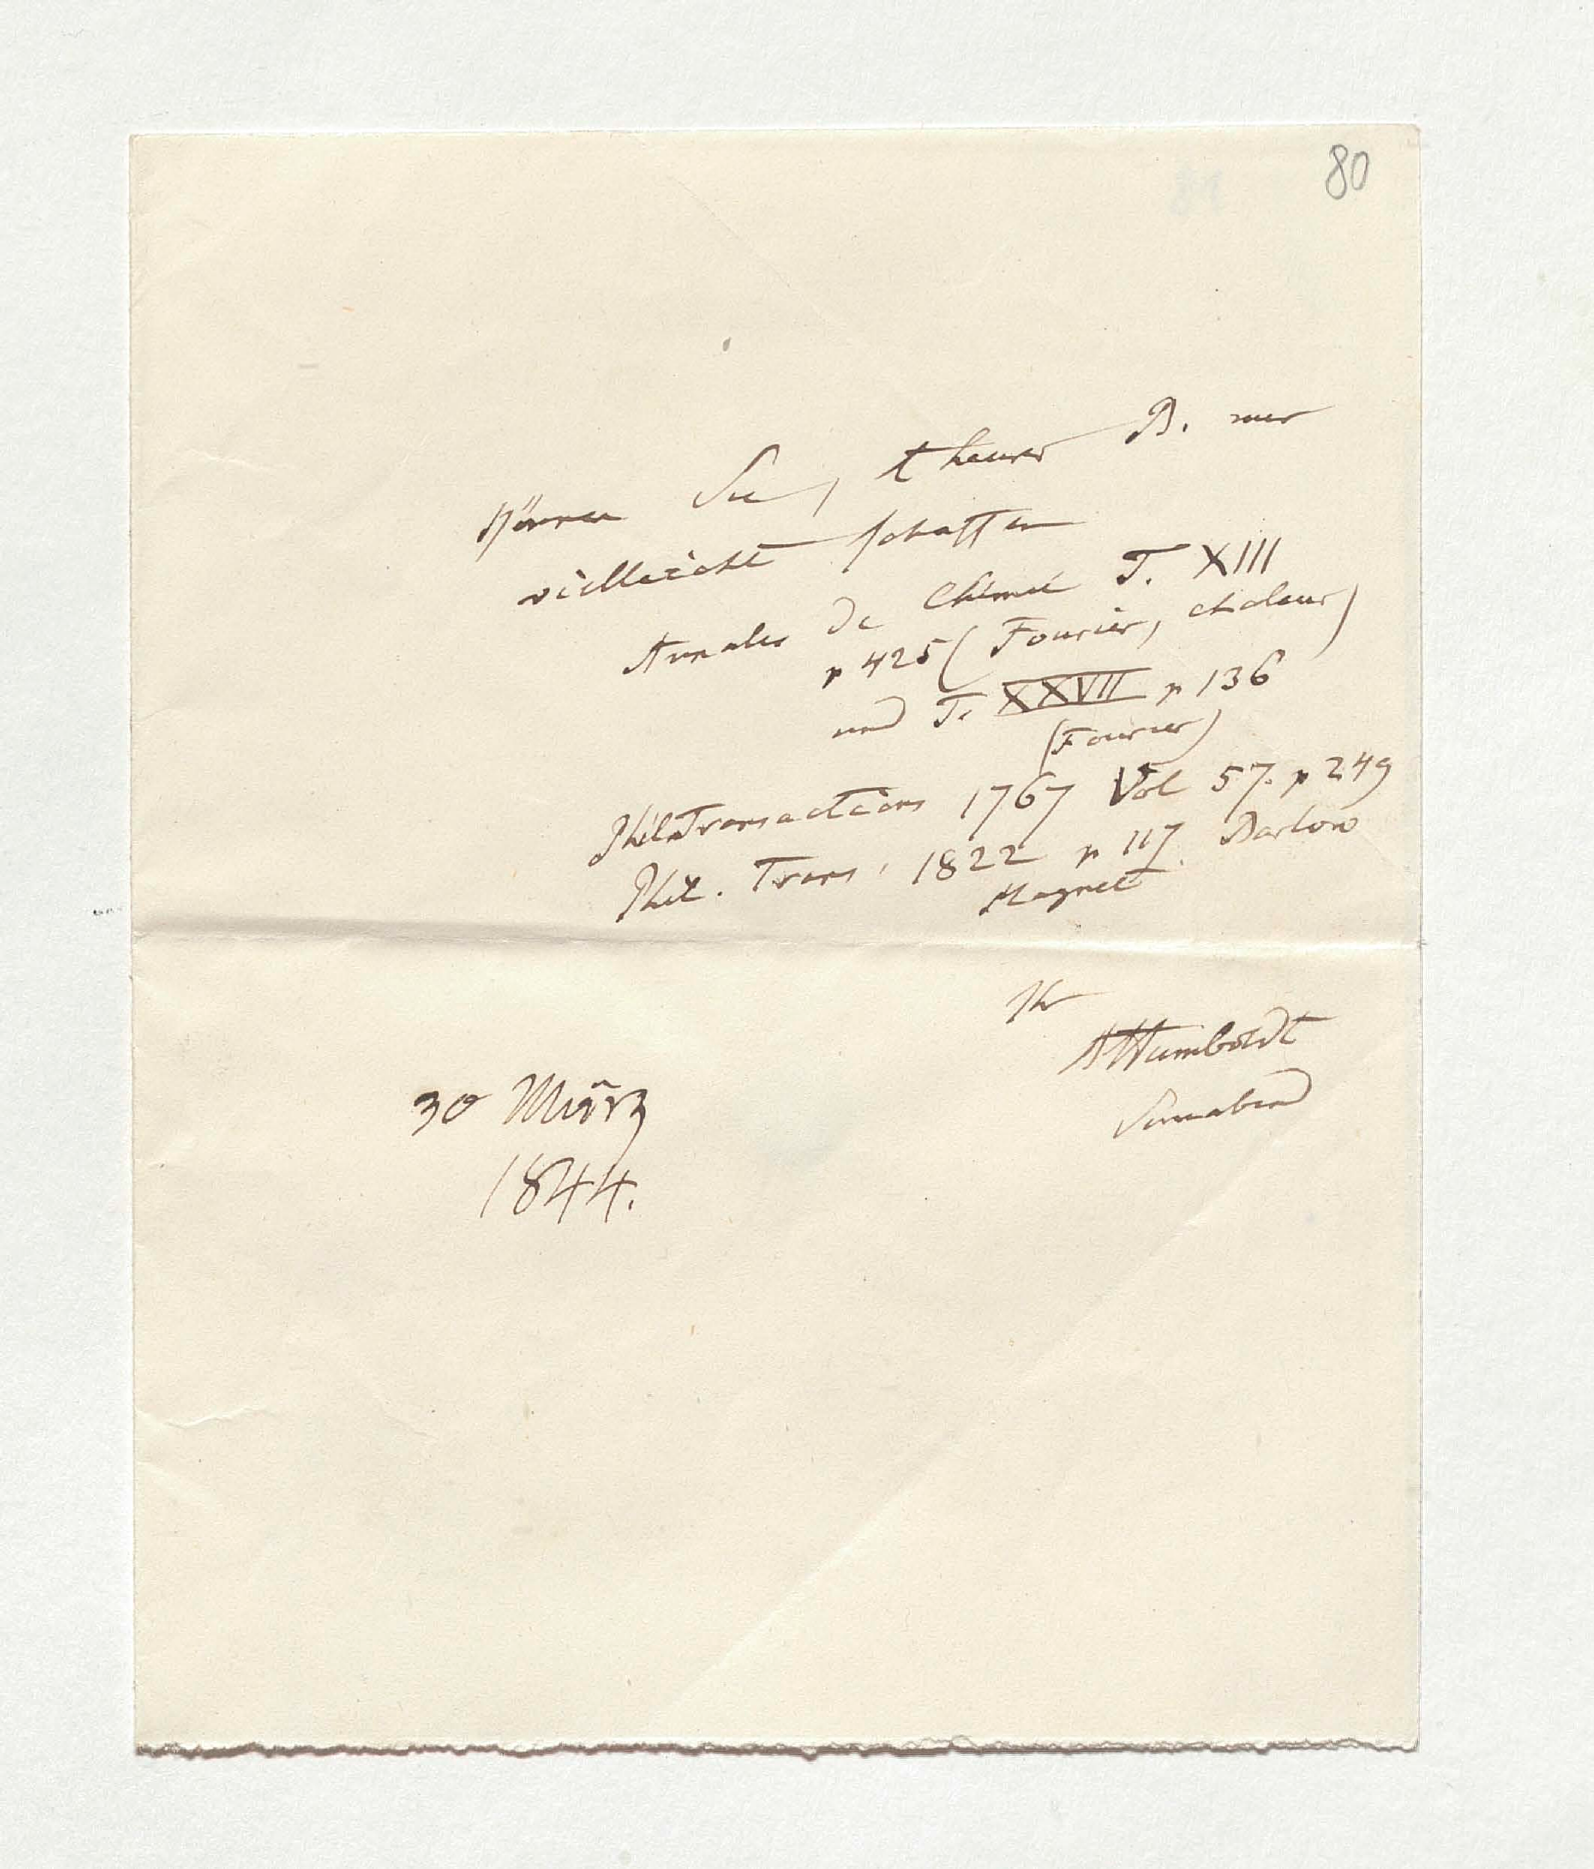 80
Können Sie, theurer B. mir
vielleicht schaffen
Annales de Chimie T. XIII
p 425 (Fourier, chaleur)
und T. XXVII p 136
(Fourier)
Phil Transactions 1767 Vol 57. p 249
Phil. Trans. 1822 p 117. Barlow
Magnet
Ihr
AHumboldt
Sonnabend
30 März
1844.